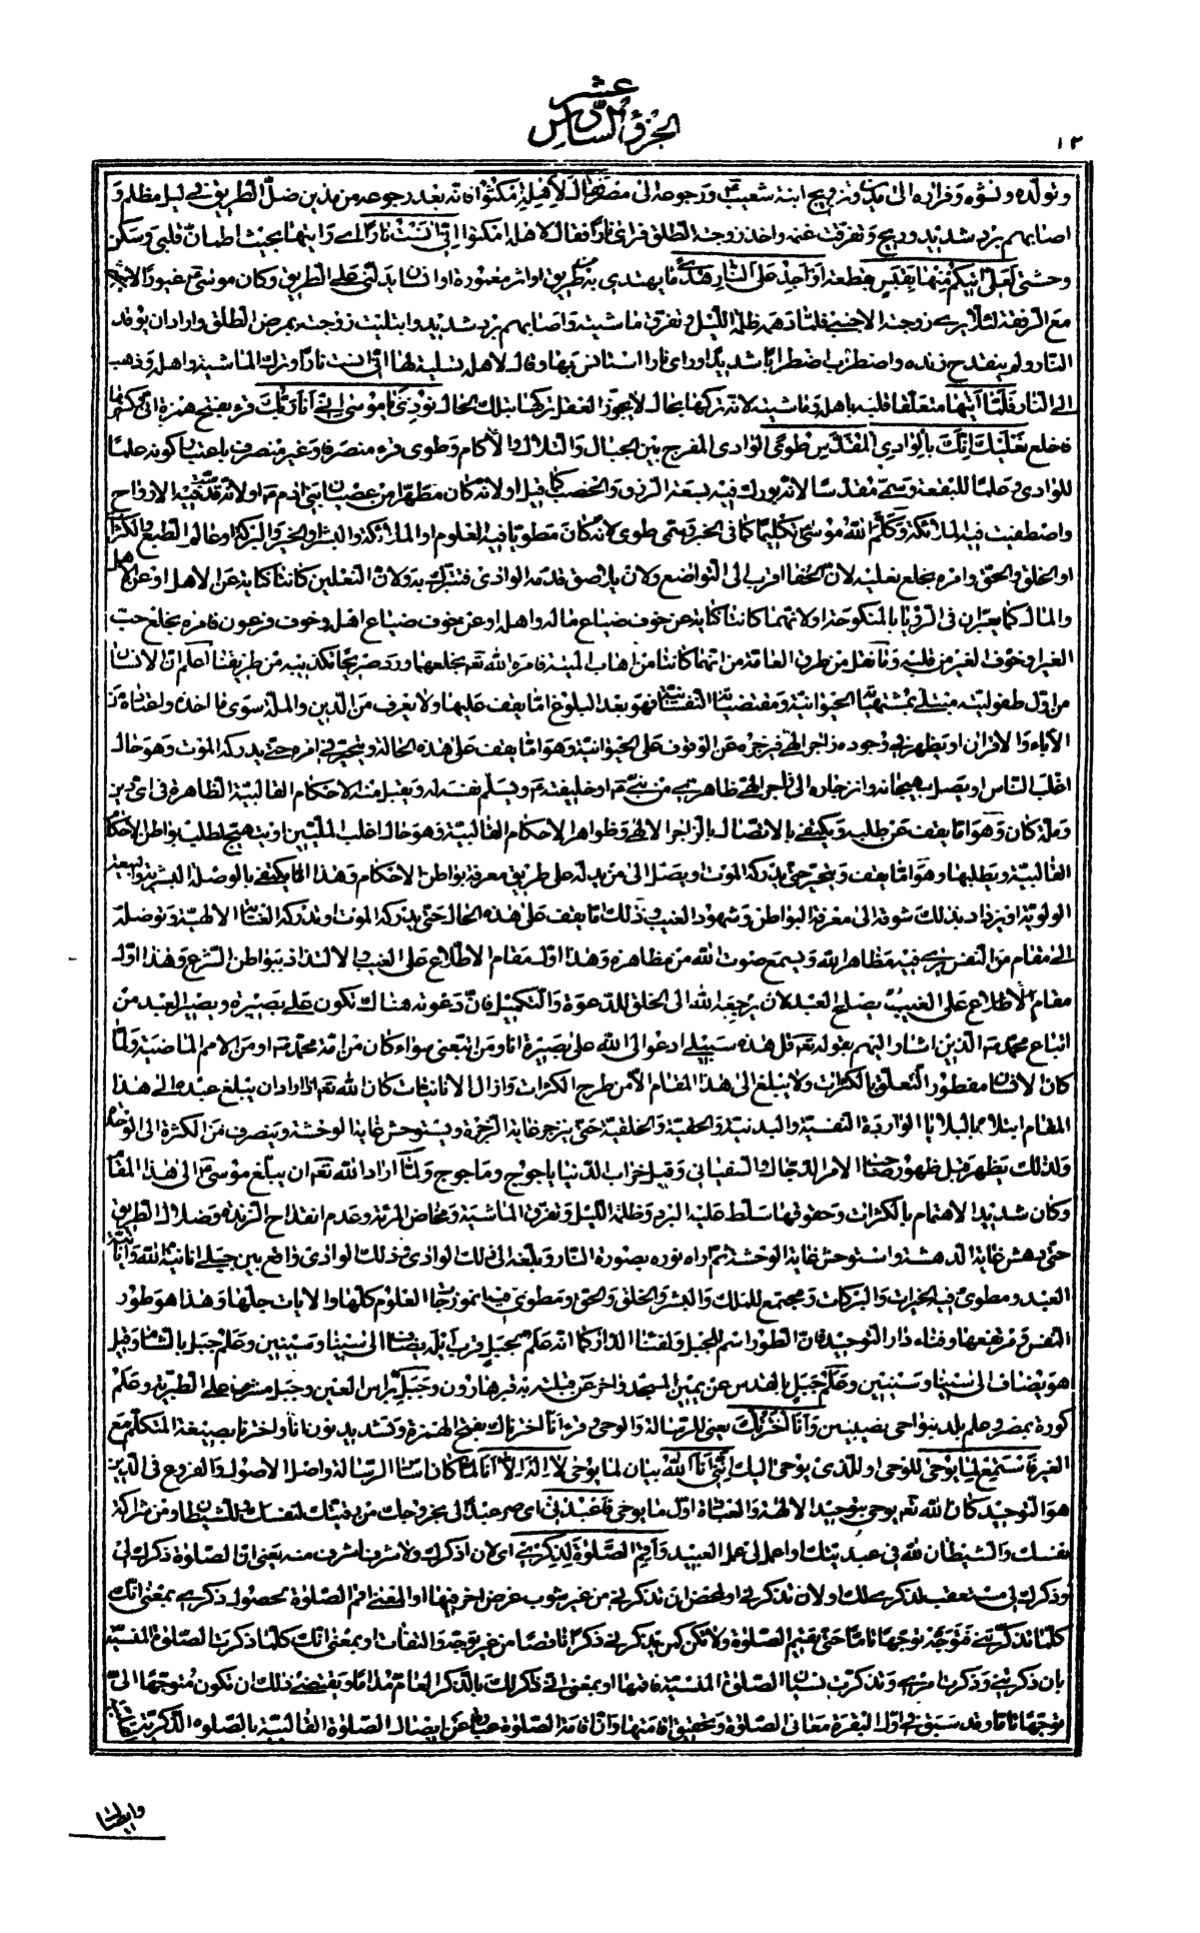 الجزؤ السادس عشر
١٣
وتولّده ونشؤه وفراره الى مدين وتزويج ابنة شعيبؑ ورجوعه الى مصر فَقٰالَ لِأَهْلِهِ امْكُثُوٓا فانّه بعد رجوعه من مدين ضلّ الطريق فى ليل مظلم و
اصابهم برد شديد وريح وتفرقت غنمه واخذ زوجته الطلق فرأى ناراً فقال لاهله امكثوا اِنّى اٰنَسْتُ نٰاراً اى رايتها بحيث اطمأنّ قلبى وسكن
وحشتى لَعَلّى اٰتيكُمْ مِنْهٰا بِقَبَسٍ قطعة اَوْ اَجِدُ عَلَى النّٰارِ هُدىً ما يهتدى به من طريق او اثر معبوره او انسان يدلّنى على الطريق وكان موسىؑ غيوراً لا
مع الرفقة لئلا يرى زوجته الاجنبى فلمّا دهمه ظلمة الليل وتفرق ماشيته واصابهم برد شديد وابتليت زوجته بمرض الطلق واراد ان يوقد
النار ولم ينقدح زنده واضطرب اضطراباً شديداً ورأى ناراً استأنس بها وقال لاهله تسلية لها انّى اٰنست ناراً وترك الماشية واهله وذهب
الى النار فَلَمّٰا اَتٰيهٰا متعلّقاً قلبه باهله وماشيته لانّه تركها بحال لا يجوّز العقل تركها بتلك الحال نُودِىَ يٰا مُوسىٰ اِنّى اَنَا رَبُّكَ قرء بفتح همزة انّى وكسرها
فَاخْلَعْ نَعْلَيْكَ اِنَّكَ بِالْوٰادِى الْمُقَدَّسِ طُوىً الوادى المفرج بين الجبال والتلال والاكام وطوى قرء منصرفاً وغير منصرف باعتبار كونه علماً
للوادى وعلماً للبقعة وسمّى مقدّساً لانّه بورك فيه بسعة الرزق والخصب كما قيل او لانّه كان مطهّراً من عصيان بنى اٰدمؑ او لانّه قدّست فيه الارواح
واصطفيت فيه الملائكة وكلّم اللّٰه موسى تكليماً كما فى الخبر وسمّى طوى لانّه كان مطويّاً فيه العلوم او الملائكة والبشر او الخير والبركة او عالم الطبع والكثرات
او الخلق والحق وامره بخلع نعليه لانّ الحفا اقرب الى التواضع ولان يلاصق قدمه الوادى فتتبرّك به ولانّ النعلين كانتا كناية عن الاهل او عن الاهل
والمال كما يعبّران فى الرؤيا بالمنكوحة او لانّهما كانتا كناية عن خوف ضياع ماله واهله او عن خوف ضياع اهله وخوف فرعون فامره بخلع حبّ
الغير او خوف الغير من قلبه وما نقل من طرق العامّة من انّهما كانتا من اهاب الميتة فامره اللّٰه تعؐ بخلعهما ورد صريحاً تكذيبه من طريقنا اعلم انّ الانسان
من اوّل طفوليّته مبتلى بمشتهياته الحيوانيّة ومقتضياته النفسانيّة فهو بعد البلوغ امّا يقف عليها ولا يعرف من الدين والملّة سوى ما اخذه واعتاده من
الاٰباء والاقران او يظهر فى وجوده زاجر الهىّ فيزجره عن الوقوف على الحيوانيّة وهو امّا يقف على هذه الحالة ويتحيّر فى امره حتّى يدركه الموت وهو حال
اغلب الناس او يصل بهيجانه وانزجاره الى زاجر الهىّ ظاهرىّ من نبىّؑ او خليفتهؑ ويسلّم نفسه له ويقبل منه الاحكام القالبيّة الظاهرة فى اىّ دين
وملّة كان وهو امّا يقف عن طلبه ويكتفى بالاتّصال بالزاجر الالهىّ وظواهر الاحكام القالبيّة وهو حال اغلب الملّيّين او يتهيّج لطلب بواطن الاحكام
القالبيّة ويطلبها وهو امّا يقف ويتحيّر حتّى يدركه الموت او يصل الى من يدلّه على طريق معرفة بواطن الاحكام وهذا امّا يكتفى بالوصلة البشريّة والبيعة
الولويّة او يزداد بذلك شوقه الى معرفة البواطن وشهود الغيب وذلك امّا يقف على هذه الحال حتّى يدركه الموت او تدركه العناية الالهيّة وتوصله
الى مقام من النفس يرى فيه مظاهر اللّٰه ويسمع صوت اللّٰه من مظاهره وهذا اوّل مقام الاطّلاع على الغيب والالتذاذ ببواطن الشرع وهذا اوّل
مقام الاطّلاع على الغيب يصلح العبد لان يرجعه اللّٰه الى الخلق للدعوة والتكميل فانّ دعوته هناك تكون على بصيرة ويصير العبد من
اتباع محمّدؐ الذين اشار اليهم بقوله تعؐ قل هذه سبيلى ادعو الى اللّٰه على بصيرة انا ومن اتّبعنى سواء كان من امّة محمّدؐ او من الامم الماضية ولمّا
كان الانسان مفطور التعلّق بالكثرات ولا يبلغ الى هذا المقام الّا من طرح الكثرات وازال الانانيّات كان اللّٰه تعؐ اذا اراد ان يبلغ عبده الى هذا
المقام ابتلاه بالبلايا الواردة النفسيّة والبدنيّة والحقيّة والخلقيّة حتّى ينزجر غاية الزجرة ويستوحش غاية الوحشة وينصرف من الكثرة الى الوحدة
ولذلك يظهر قبل ظهور صاحب الامر الدجّال والسفيانى وقبل خراب الدنيا ياجوج وماجوج ولمّا اراد اللّٰه تعؐ ان يبلّغ موسىؑ الى هذا المقام
وكان شديد الاهتمام بالكثرات وحقوقها سلّط عليه البرد وظلمة الليل وتفرّق الماشية ومخاض المرئة وعدم انقداح الزند وضلال الطريق
حتّى دهش غاية الدهشة واستوحش غاية الوحشة ثمّ اراه نوره بصورة النار وبلّغه الى ذلك الوادى وذلك الوادى واقع بين جبلى انانيّة اللّٰه وانانيّة
العبد ومطوىّ فيه الخيرات والبركات ومجتمع للملك والبشر والخلق والحق ومطوىّ فيه انموزجات العلوم كلّها والاٰيات جلّها وهذا هو طور
النفس ومرتفعها وفناء دار التوحيد فانّ الطور اسم للجبل ولفناء الدار كما انّه علم لجبل قرب ايلة يضاف الى سينا وسينين وعلم جبل بالشام وقيل
هو يضاف الى سينا وسينين وعلم جبل بالقدس عن يمين المسجد واٰخر عن قبلته به قبر هارون وجبل برأس العين وجبل مشرف على الطبريّة وعلم
كورة بمصر وعلم بلد بنواحى نصيبين وَاَنَا اخْتَرْتُكَ يعنى للرسالة والوحى وقرء انّا اخترناك بفتح الهمزة وتشديد نون انّا واخترنا بصيغة المتكلّم مع
الغير فَاسْتَمِعْ لِمٰا يُوحىٰ للوحى او للذى يوحى اليك اِنَّنى اَنَا اللّٰهُ بيان لما يوحى لٰا اِلٰهَ اِلّٰا اَنَا لمّا كان اساس الرسالة واصل الاصول والفروع فى الدين
هو التوحيد كان اللّٰه تعؐ يوحى بتوحيد الالهة والعباد اوّل ما يوحى فَاعْبُدْنى اى صر عبداً لى بخروجك من رقيّتك لنفسك للشيطان ومن شراكة
نفسك والشيطان للّٰه فى عبديّتك او اعمل لى عمل العبيد وَاَقِمِ الصَّلوٰةَ لِذِكْرى اى لان اذكرك ولا شرف اشرف منه يعنى انّ الصلوة ذكرك لى
وذكرك لى مستعقب لذكرى لك او لان تذكرنى او لمحض ان تذكرنى من غير شوب غرض اٰخر فيها او المعنى اقم الصلوة بحصول ذكرى بمعنى انّك
كلّما تذكّرتنى فتوجّه توجّهاً تامّاً حتّى تقيم الصلوة ولا تكن كمن يذكرنى ذكراً ناقصاً من غير توجّه والتفات او بمعنى انّك كلّما ذكرت الصلوة المنسيّة
بان ذكرتنى وذكرت امرى وتذكّرت نسيان الصلوة المنسيّة فاقمها او بمعنى انّى ذكرتك بالذكر العامّ مداماً ويقتضى ذلك ان تكون متوجّهاً الىّ
توجّهاً تامّاً وقد سبق فى اوّل البقرة معانى الصلوة وتحقيق اقامتها وانّ اقامة الصلوة عبارة عن ايصال الصلوة القالبيّة بالصلوة الذكريّة